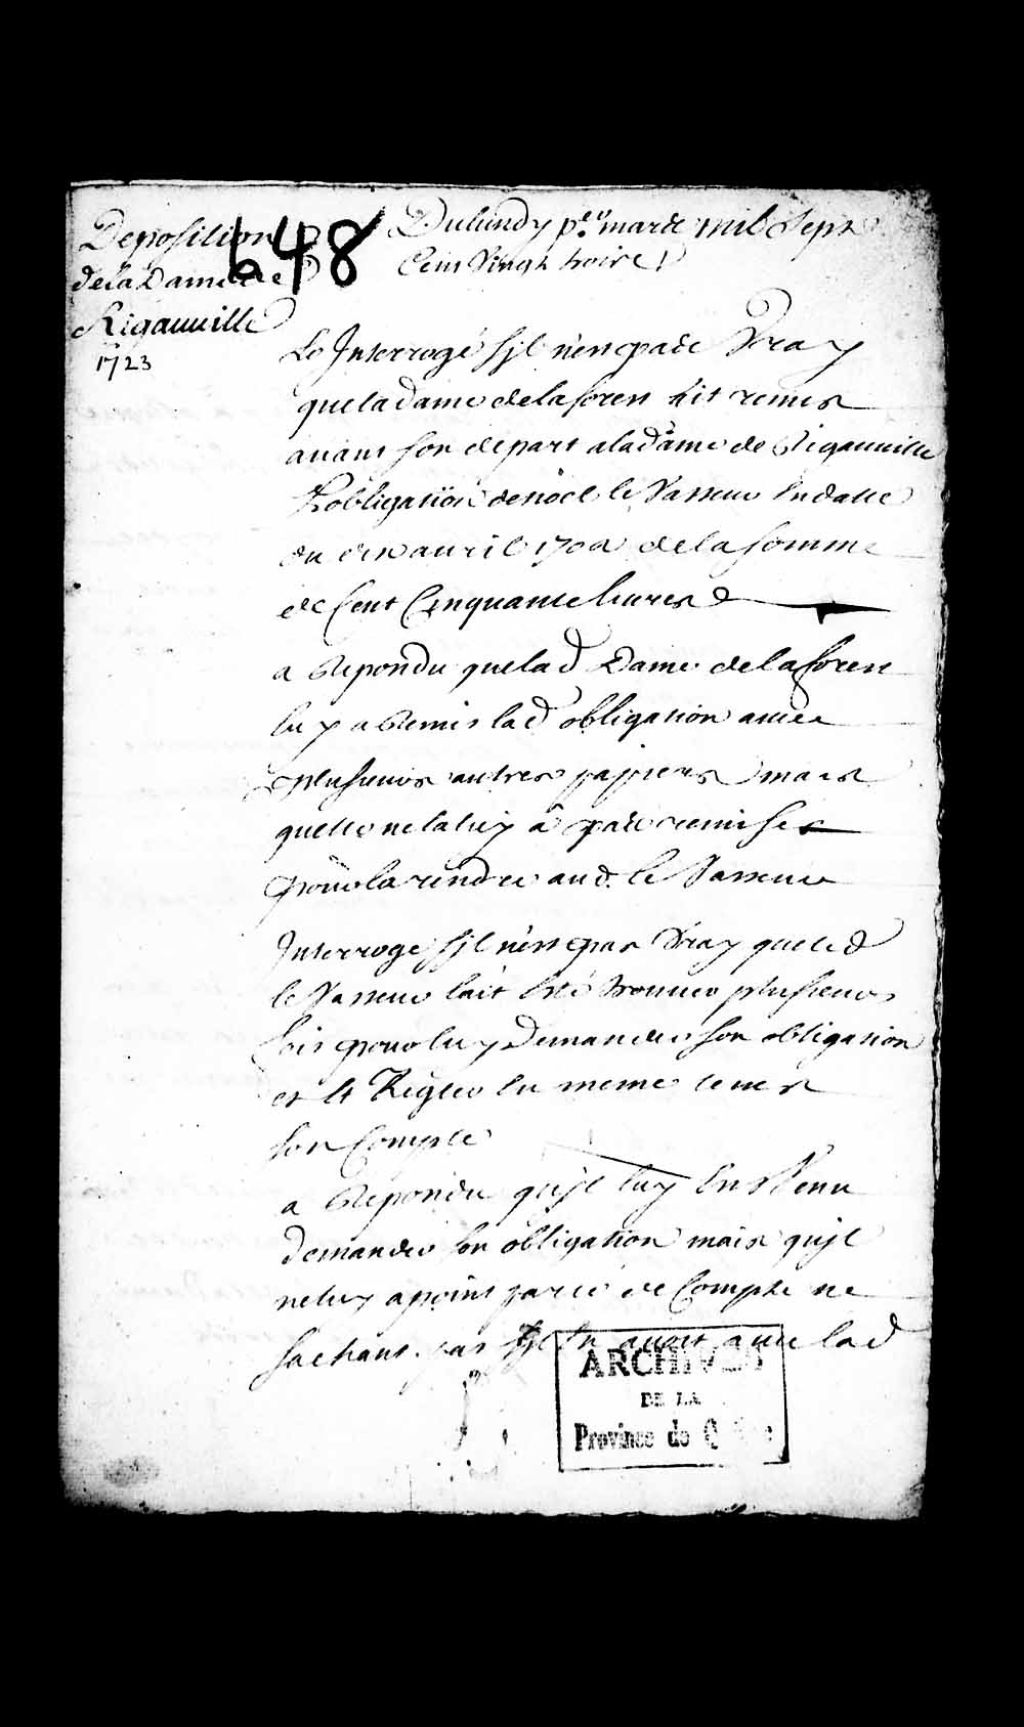 Deposition
de la Dame de
Rigauville
1723
648
Du lundy p.er mars mil sept
Cent Vingt troire
Interrogé sjl n'est pas Vray
que la dame de la forest ait remis
auant son depart a la dame de Rigauuille
L'obligation de noël le Vasseur En datte
du avril de la somme
de Cent Cinquante liures
a Repondu que lad Dame de la forest
luy a Remis lad obligation auec
plusieurs autres papiers mais
quelle ne la luy â pas remise
pour la rendre aud. le Vasseur
Interrogé sjl n'est pas Vray que led
le Vasseur lait Esté trouuer plusieurs
fois pour luy Demander son obligation
et Regler En meme tems
son Compte
a Repondu qu'jl luy En Venu
demander son obligation mais qu'jl
ne luy a point parlé de Compte ne
sachant pas sjl En auoit auec lad
ARCHIVES
DE LA
Province de Québec